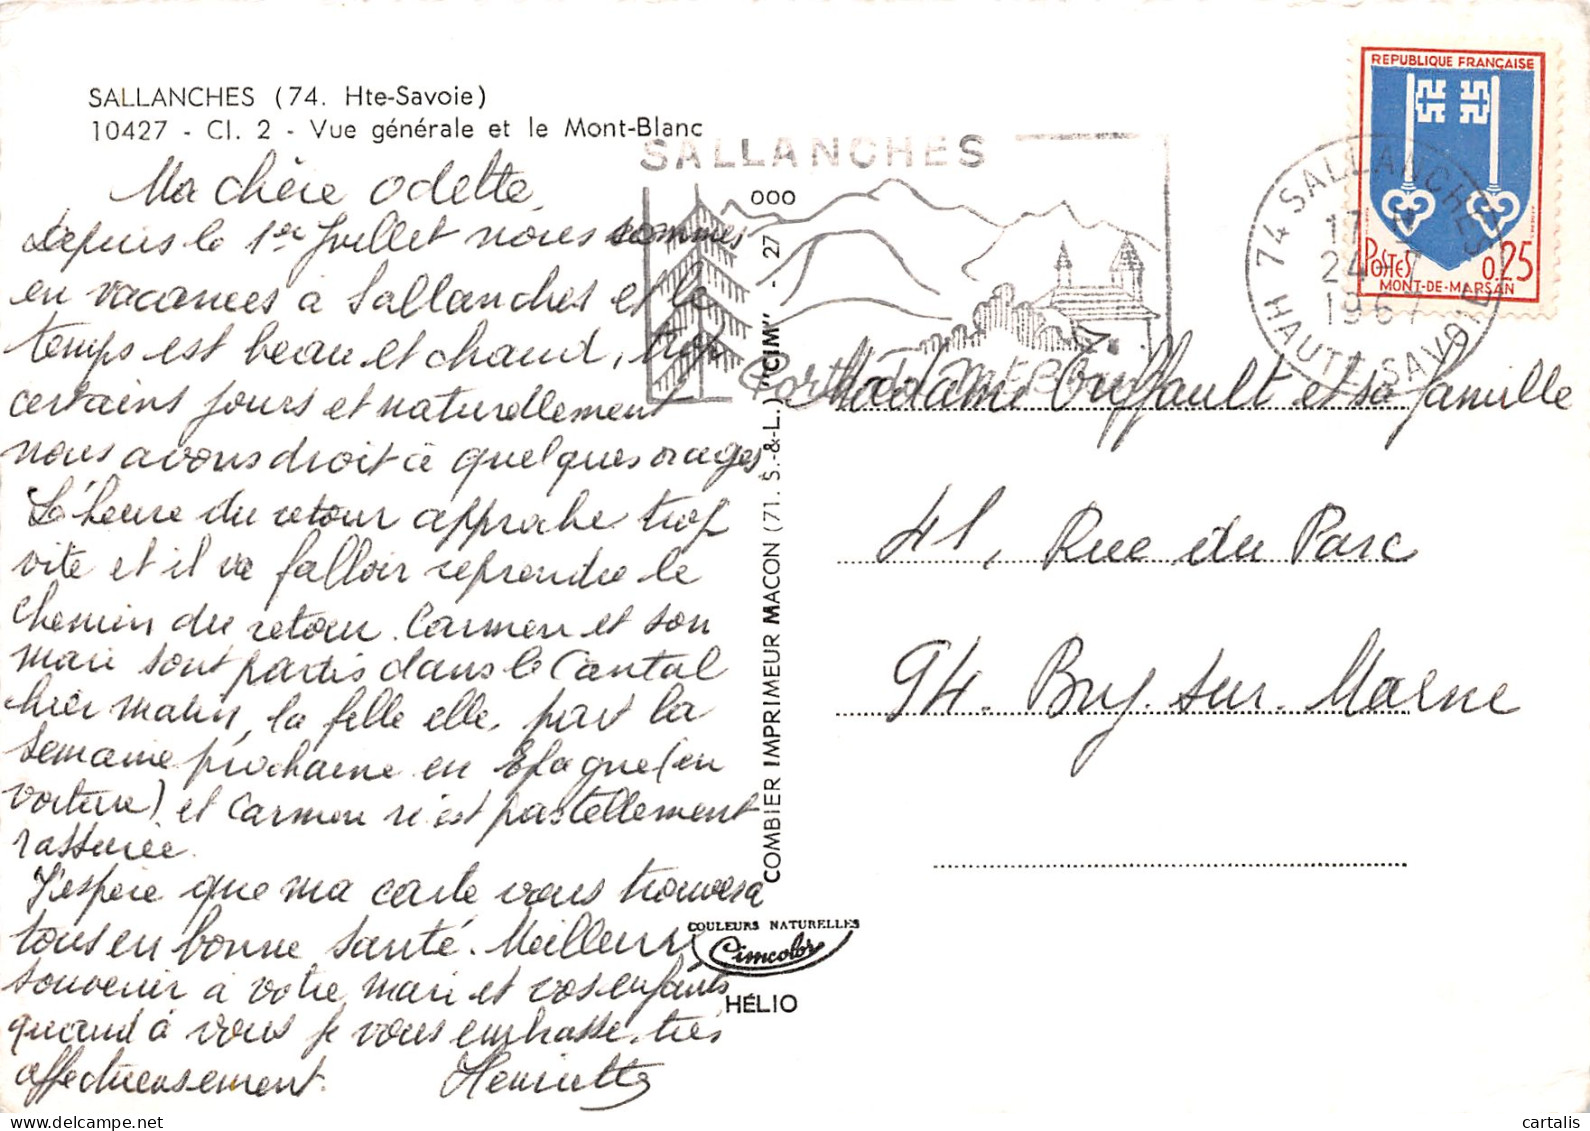 SALLANCHES (74. Hte-Savoie)
10427 - Cl. 2 - Vue générale et le Mont-Blanc
Ma chère Odette,
depuis le 1er Juillet nous sommes
en vacances à Sallanches et le
temps est beau et chaud, trop
certains jours et naturellement
nous avons droit à quelques orages
L'heure du retour approche trop
vite et il va falloir reprendre le
chemin du retour. Carmen et son
mari sont partis dans le Cantal
hier matin, la fille elle, part la
semaine prochaine en Espagne (en
voiture) et Carmen n'est pas tellement
rassurée.
J'espère que ma carte vous trouvera
tous en bonne santé. Meilleurs
souvenir à votre mari et vos enfants
quand à vous je vous embrasse très
affectueusement. Henriette
COMBIER IMPRIMEUR MACON (71. S.-&-L.) "CIM" - 27 000
COULEURS NATURELLES
Cimcolor
HÉLIO
SALLANCHES
74 SALLANCHES
17
24-7
1967
HAUTE SAVOIE
REPUBLIQUE FRANÇAISE
POSTES 0,25
MONT-DE-MARSAN
Madame Truffault et sa famille
41, Rue du Parc
94. Bry. sur. Marne
© cartalis
www.delcampe.net